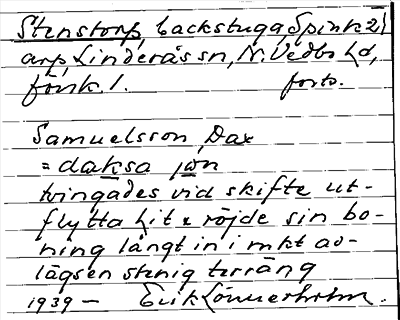 Stenstorp, backstuga Spinkz
arp, Linderås sn, N. Vedbo hd,
fornk. 1. forts.
Samuelsson, Dax
= daksa jön
tvingades vid skifte ut-
flytta hit & röjde sin bo-
ning långt in i mkt av-
lägsen stenig terräng
1939 — Erik Lönnerholm.